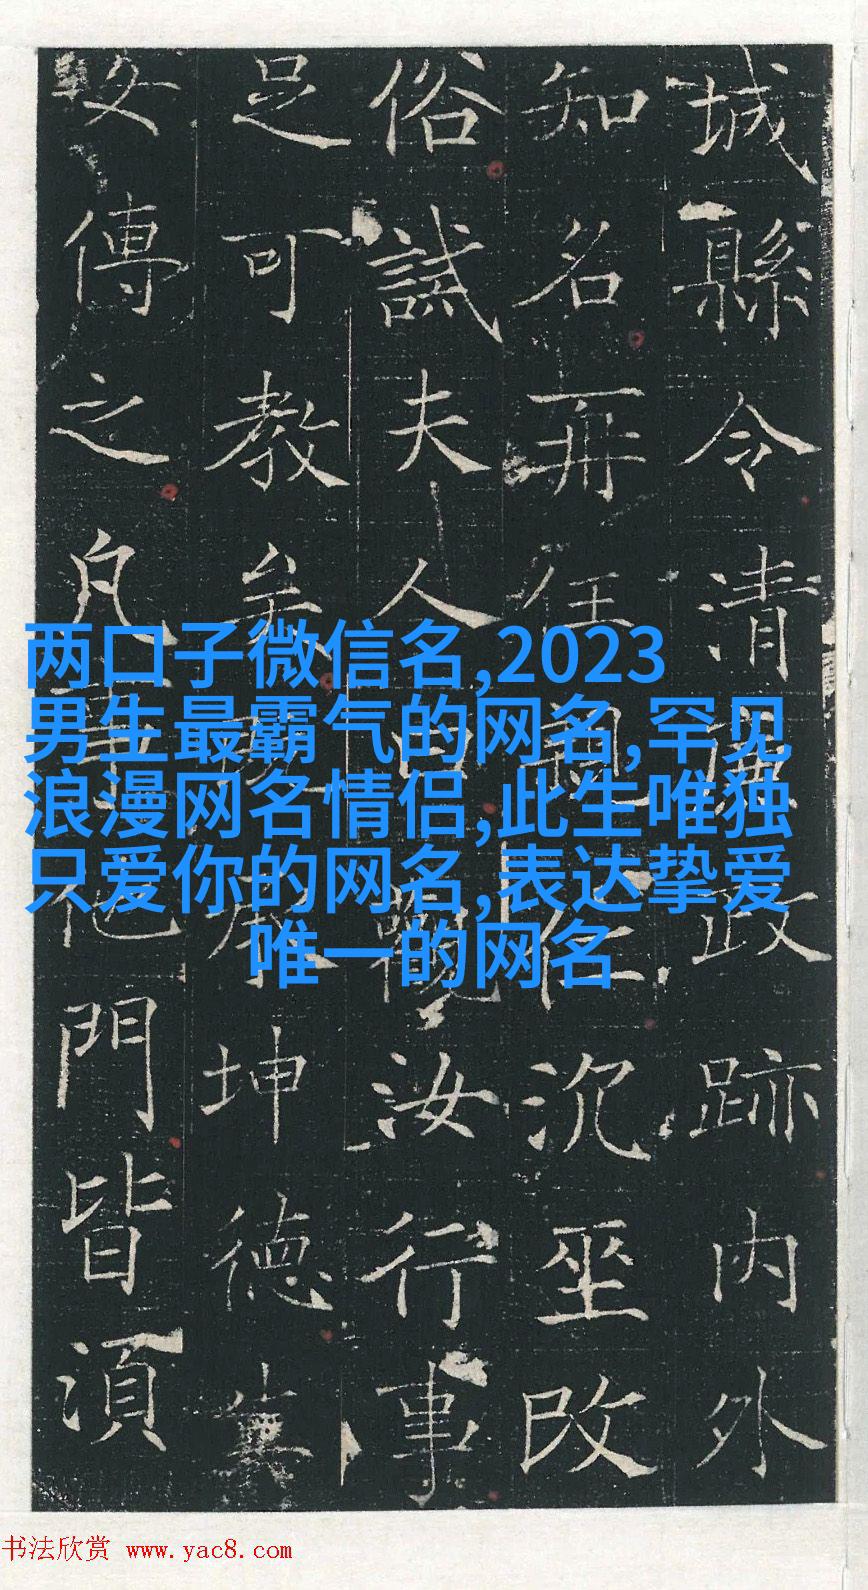 城縣令清政跡內外
知名再任仁沉坐改
俗誡夫人曰觀汝行事
足可教矣承坤德
傳之凡事他門皆須
两口子微信名,2023
男生最霸气的网名,罕见
浪漫网名情侣,此生唯独
只爱你的网名,表达挚爱
唯一的网名
书法欣赏 www.yac8.com